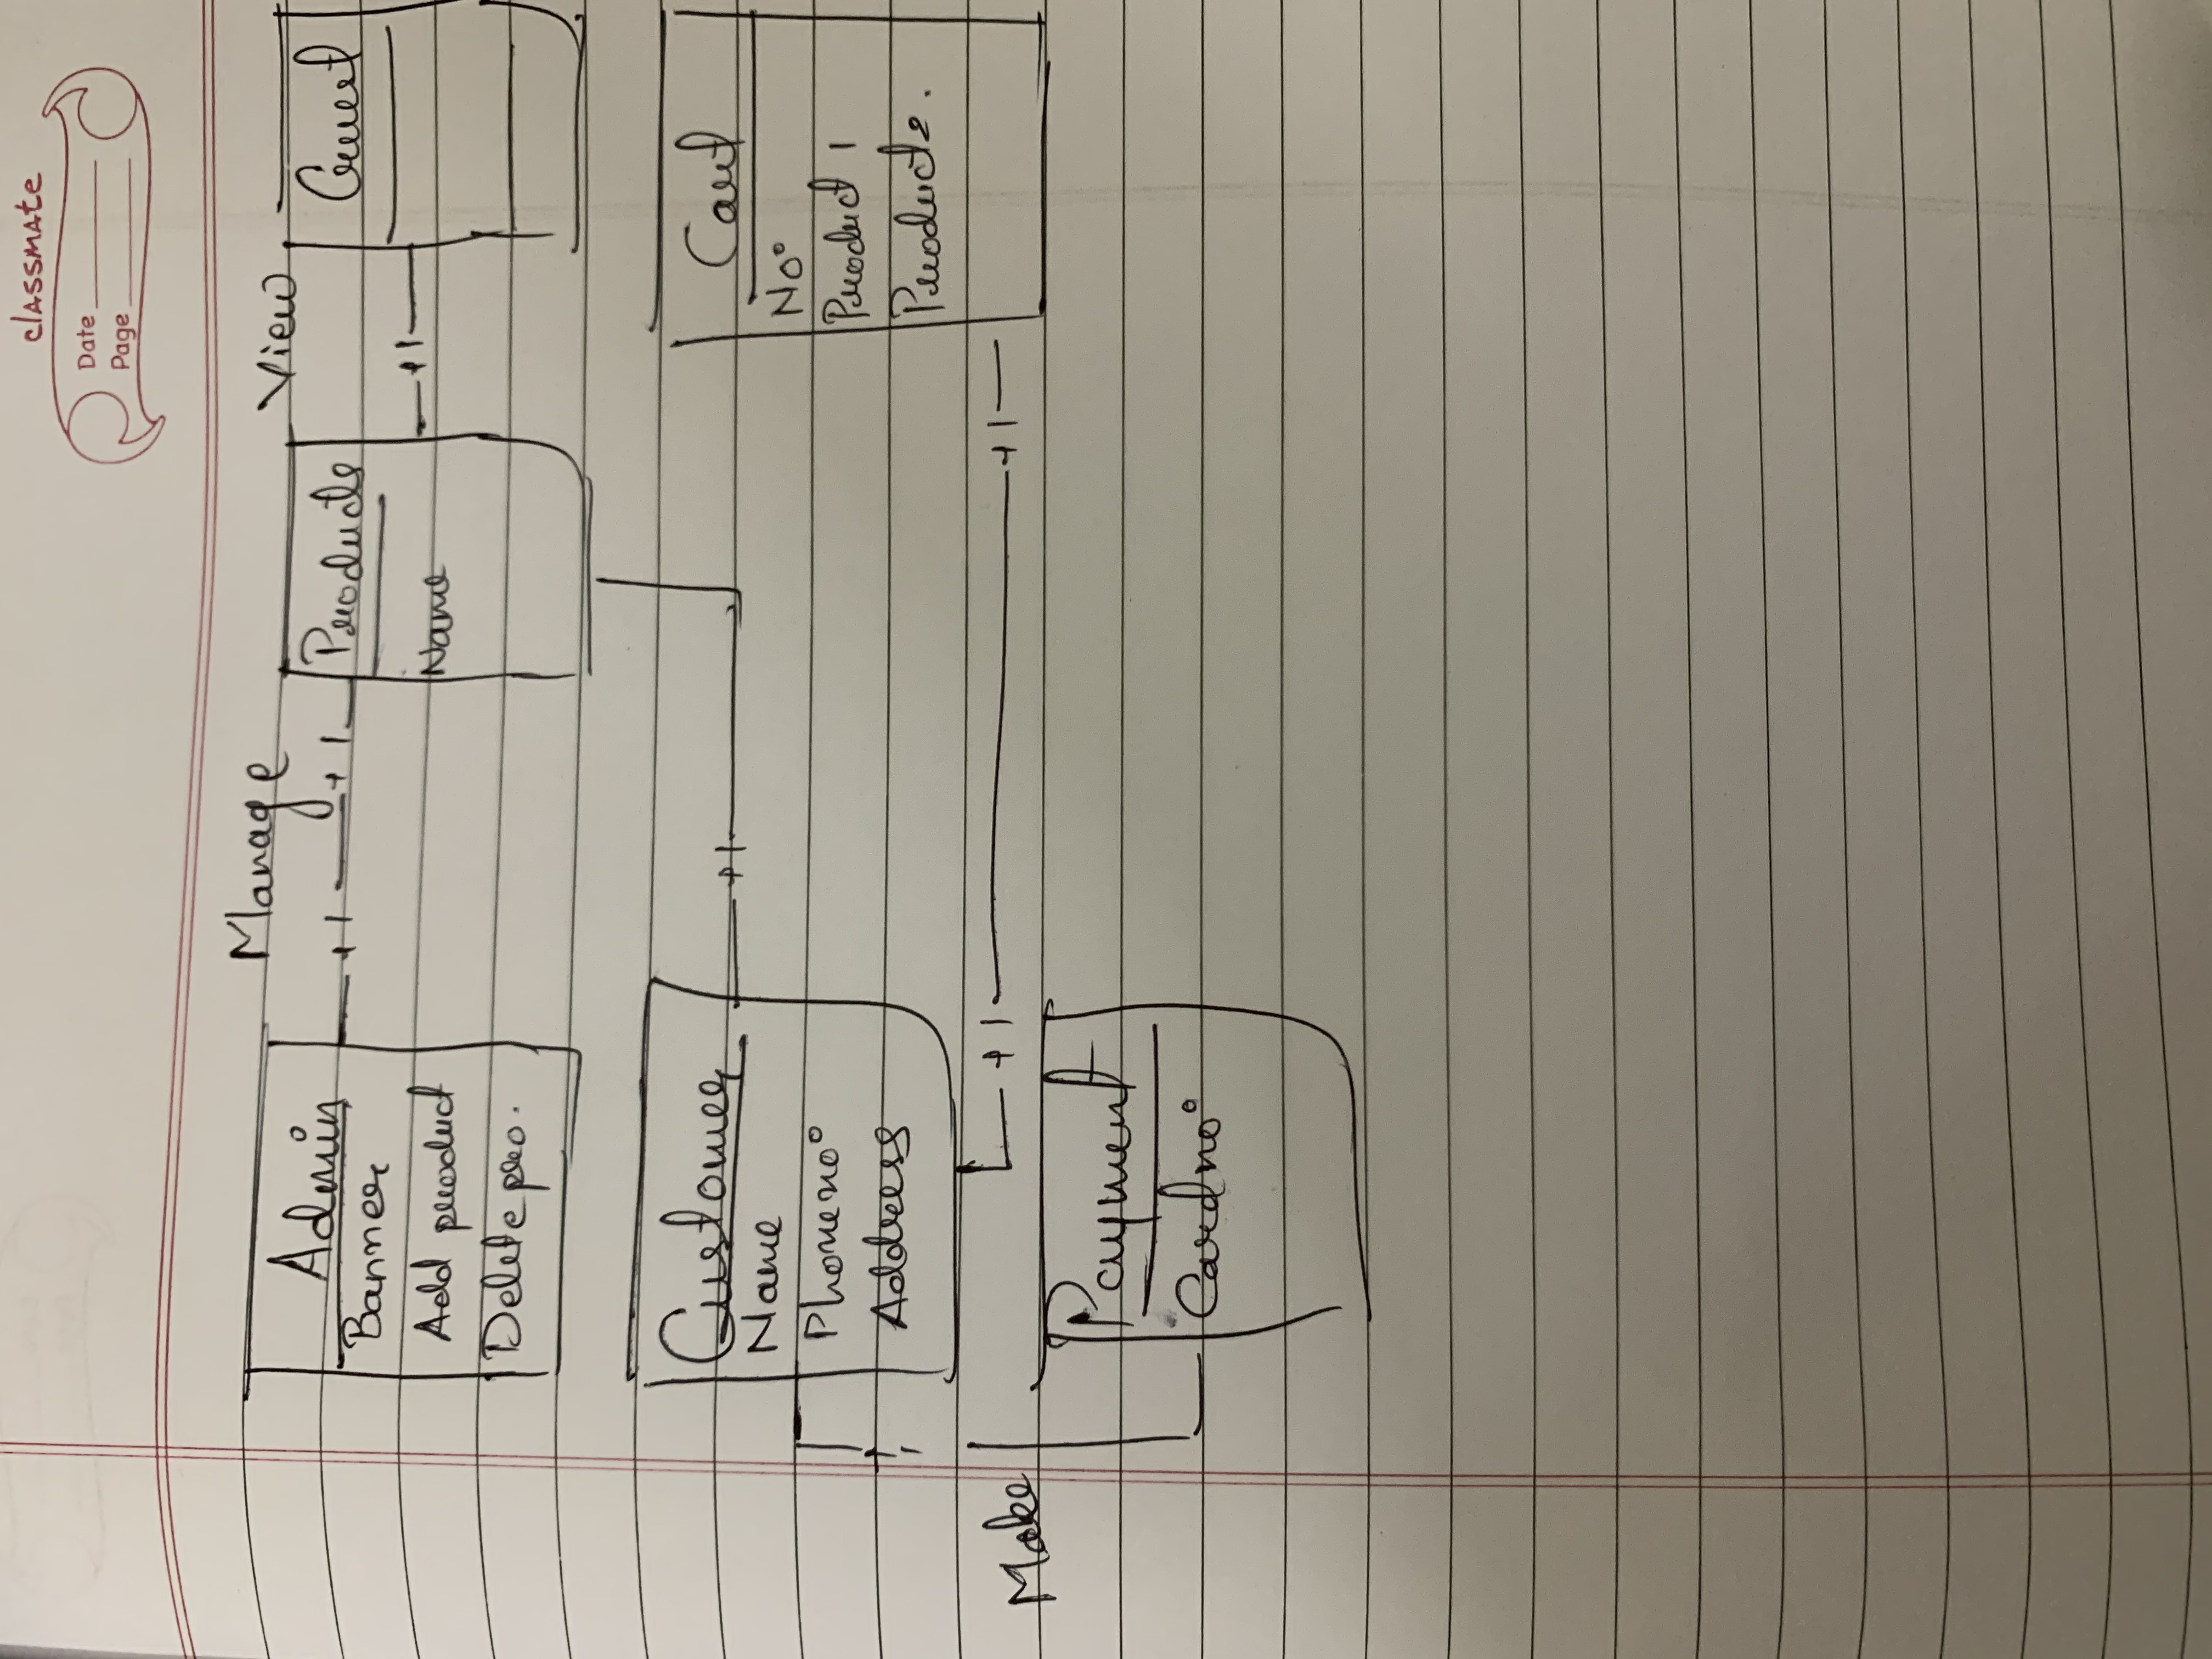 classmate
Date
Page
Manage
View
Admin
Banner
Add product
Delete pro.
Products
Name
Guest
Customer
Name
Phone no°
Address
Cart
No°
Product 1
Product 2.
Make
Payment
Card no°